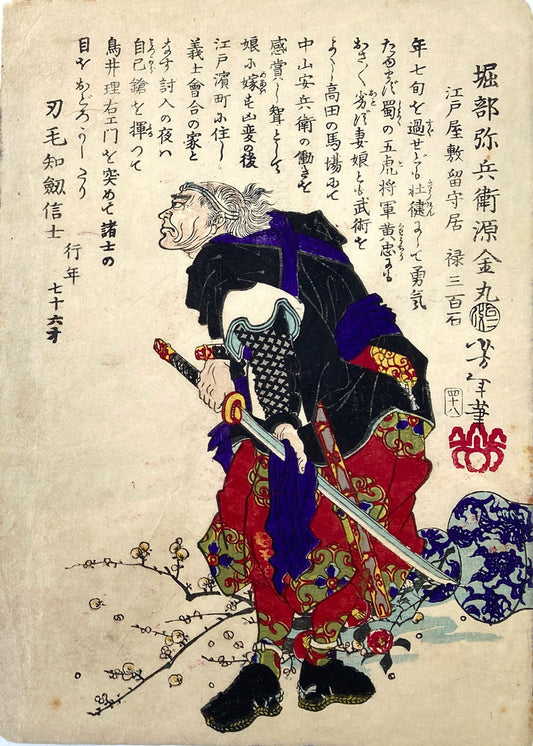 堀部弥兵衛源金丸
江戸屋敷留守居 禄三百石
芳年筆
四十八
年七旬を過せども壮健にして勇気
たゆまず蜀の五虎将軍黄忠にも
おさ〳〵劣ず妻娘とも武術を
よくし高田の馬場にて
中山安兵衛の働きを
感賞し聟として
娘に嫁せ凶変の後
江戸濱町に住し
義士會合の家と
なす討入の夜は
自己鎗を揮つて
鳥井理右エ門を突めて諸士の
目をおどろかしたり
刃毛知劔信士
行年
七十六才